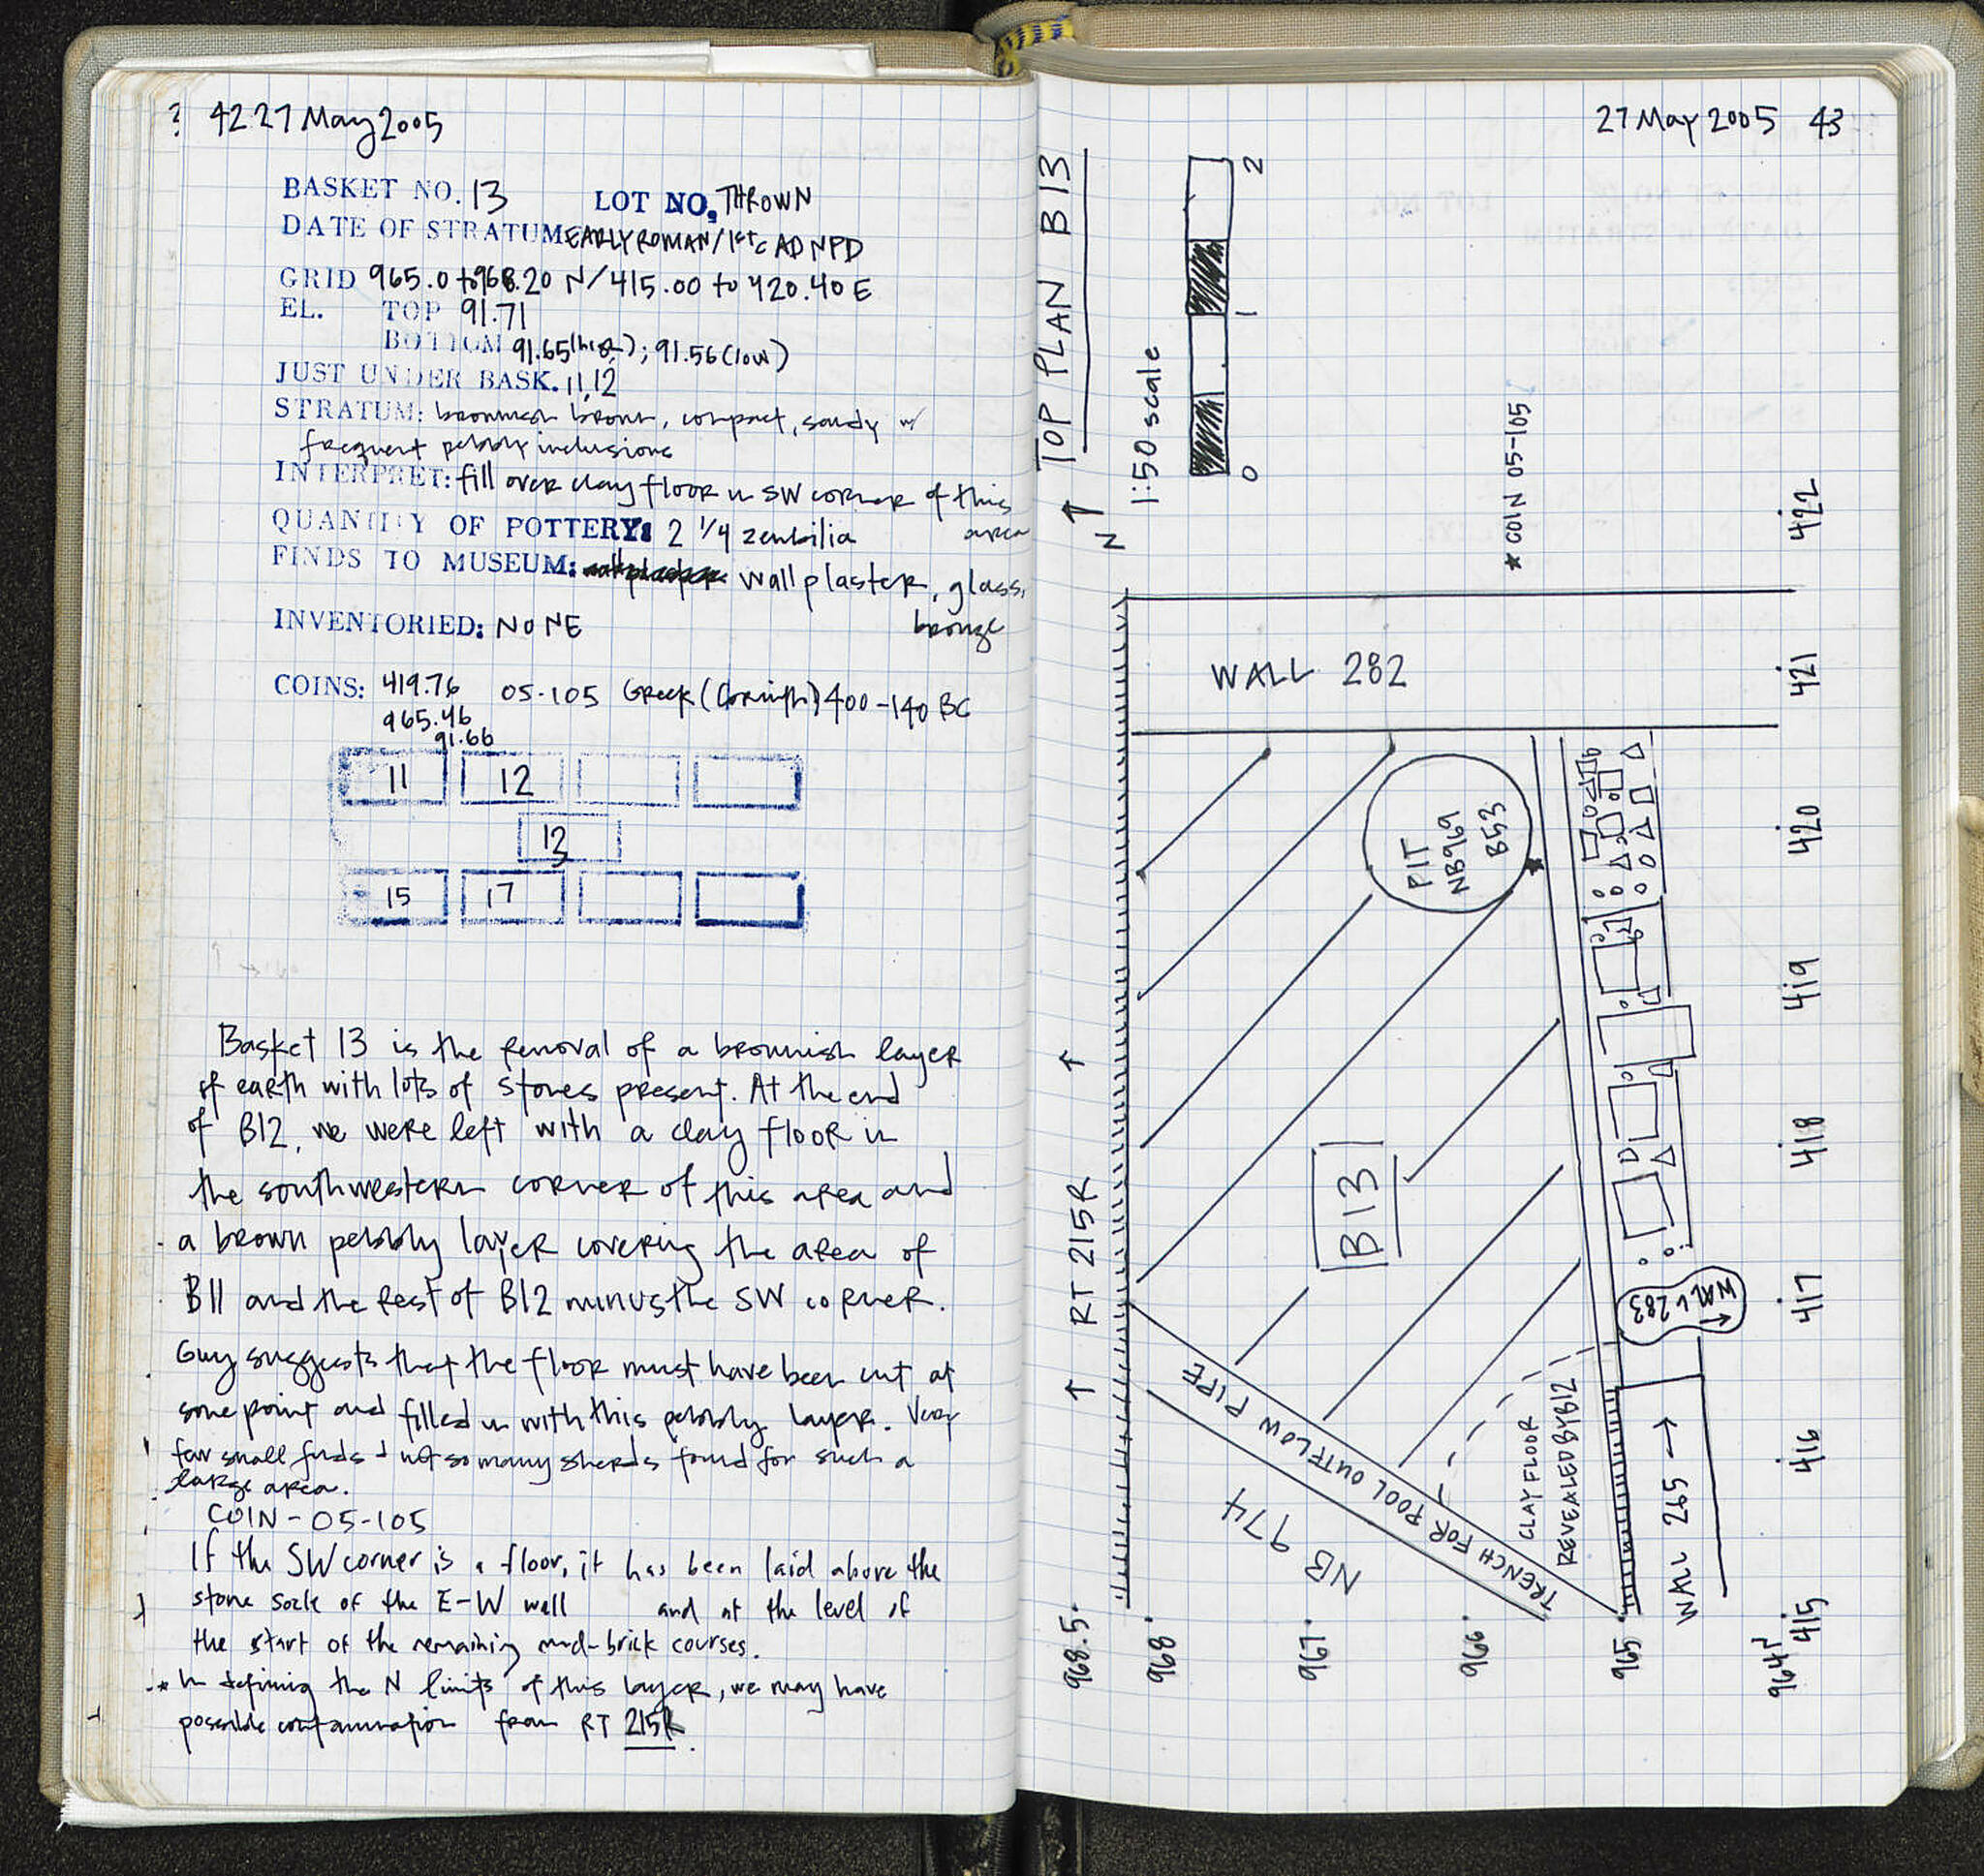 ? 42 27 May 2005
BASKET NO. 13 LOT NO. THROWN
DATE OF STRATUM EARLY ROMAN/1st c AD NPD
GRID 965.0 to 968.20 N/415.00 to 420.40 E
EL. TOP 91.71
BOTTOM 91.65 (high); 91.56 (low)
JUST UNDER BASK. 11, 12
STRATUM: brownish brown, compact, sandy w/
frequent pebbly inclusions
INTERPRET: fill over clay floor in SW corner of this
area
QUANTITY OF POTTERY: 2 1/4 zembilia
FINDS TO MUSEUM: wall plaster, glass,
bronze
INVENTORIED: NONE
COINS: 419.76 05-105 Greek (Corinth) 400-140 BC
965.46
91.66
11 12
13
15 17
Basket 13 is the removal of a brownish layer
of earth with lots of stones present. At the end
of B12, we were left with a clay floor in
the southwestern corner of this area and
a brown pebbly layer covering the area of
B11 and the rest of B12 minus the SW corner.
Guy suggests that the floor must have been cut at
some point and filled in with this pebbly layer. Very
few small finds & not so many sherds found for such a
large area.
COIN-05-105
If the SW corner is a floor, it has been laid above the
stone socle of the E-W wall and at the level of
the start of the remaining mud-brick courses.
* In defining the N limits of this layer, we may have
possible contamination from RT 215R.
27 May 2005 43
TOP PLAN B13
1:50 scale
0 1 2
N
* COIN 05-105
WALL 282
PIT
NB969
B53
RT 215R
B13
WALL 283
TRENCH FOR POOL OUTFLOW PIPE
NB 974
CLAY FLOOR
REVEALED BY B12
WALL 265 →
422
421
420
419
418
417
416
415
968.5
968
967
966
965
964